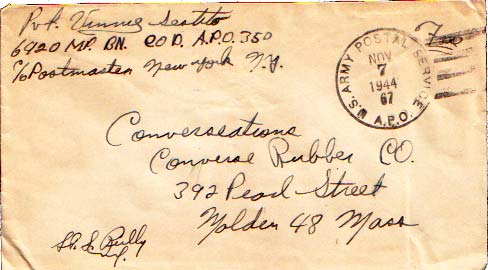 Pvt. Vinnie Scotito
6920 M.P. BN. CO D. A.P.O. 350
c/o Postmaster New York N.Y.
Free
U.S. ARMY POSTAL SERVICE
NOV
7
1944
67
A.P.O.
Converseations
Converse Rubber CO.
392 Pearl Street
Molden 48 Mass